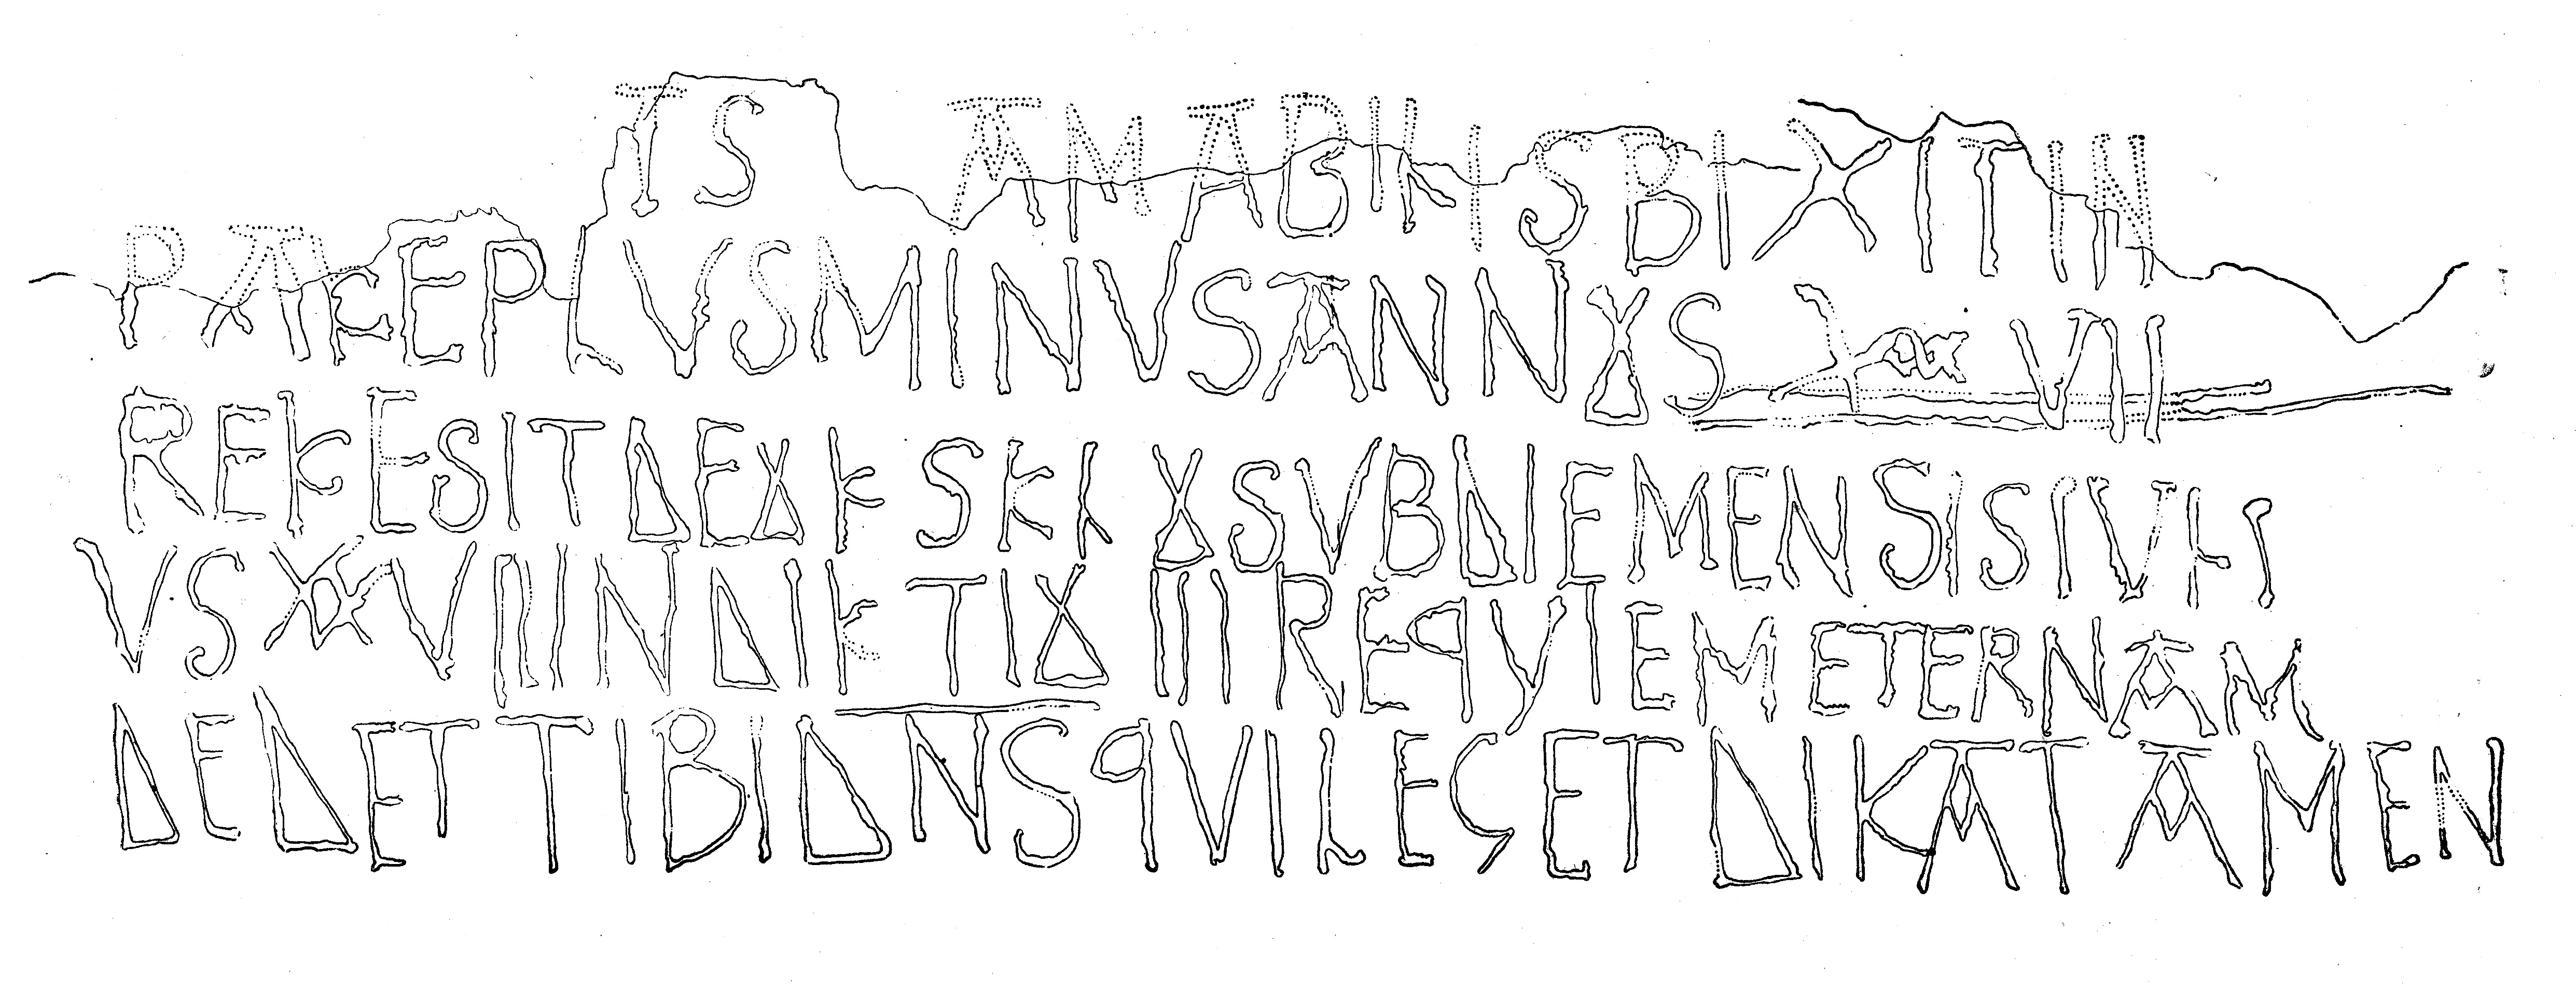 TS AMABILIS BIXIT IN
PACE PLVS MINVS ANNOS LXXVII
RECESIT DE OC SCLO SVB DIE MENSIS IVLI
VS XXVII INDICTIO III REQVIEM ETERNAM
DEDET TIBI DNS QVI LEGET DIKAT AMEN